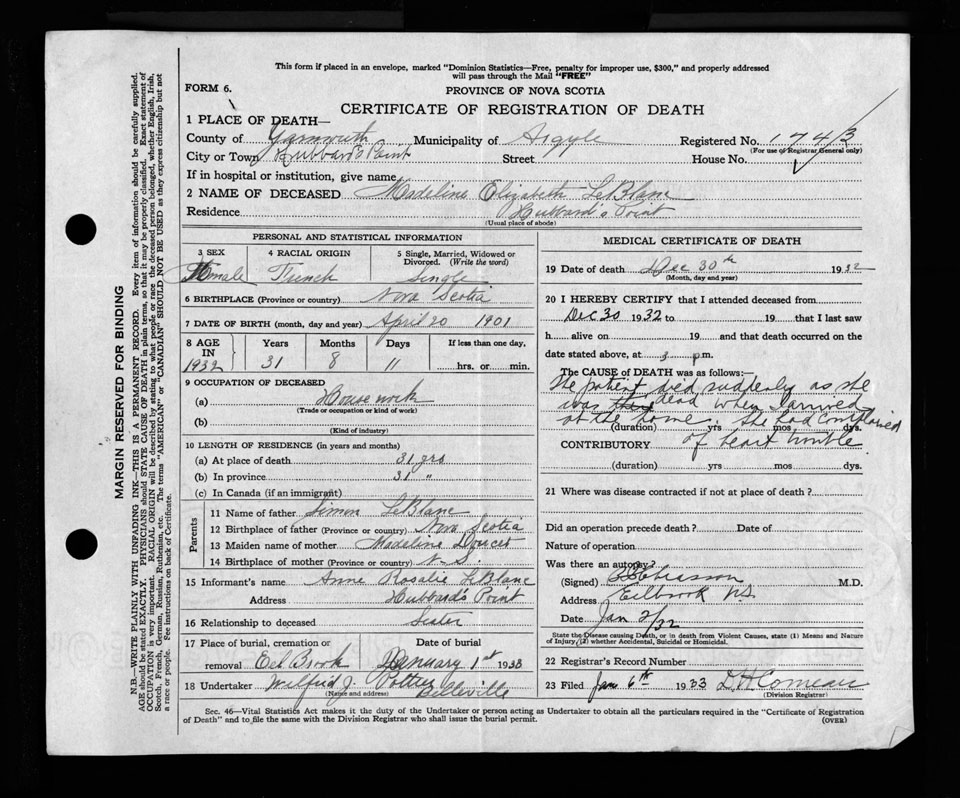 This form if placed in an envelope, marked "Dominion Statistics—Free, penalty for improper use, $300," and properly addressed
will pass through the Mail "FREE"
FORM 6.
PROVINCE OF NOVA SCOTIA
CERTIFICATE OF REGISTRATION OF DEATH
1 PLACE OF DEATH—
County of Yarmouth Municipality of Argyle Registered No. 1743
(For use of Registrar General only)
City or Town Hubbard's Point Street House No.
If in hospital or institution, give name
2 NAME OF DECEASED Madeline Elizabeth LeBlanc
Residence Hubbard's Point
(Usual place of abode)
PERSONAL AND STATISTICAL INFORMATION
3 SEX 4 RACIAL ORIGIN 5 Single, Married, Widowed or
Divorced. (Write the word)
Female French Single
6 BIRTHPLACE (Province or country) Nova Scotia
7 DATE OF BIRTH (month, day and year) April 20 1901
8 AGE Years Months Days If less than one day,
IN
1932 31 8 11 hrs. or min.
9 OCCUPATION OF DECEASED
(a) House work
(Trade or occupation or kind of work)
(b)
(Kind of industry)
10 LENGTH OF RESIDENCE (in years and months)
(a) At place of death 31 yrs
(b) In province 31 "
(c) In Canada (if an immigrant)
Parents
11 Name of father Simon LeBlanc
12 Birthplace of father (Province or country) Nova Scotia
13 Maiden name of mother Madeline Doucet
14 Birthplace of mother (Province or country) N. S.
15 Informant's name Anne Rosalie LeBlanc
Address Hubbard's Point
16 Relationship to deceased Sister
17 Place of burial, cremation or Date of burial
removal Eel Brook January 1st 1933
18 Undertaker Wilfred J. Pottier Belleville
(Name and address)
MEDICAL CERTIFICATE OF DEATH
19 Date of death Dec 30th 1932
(Month, day and year)
20 I HEREBY CERTIFY that I attended deceased from
Dec 30 1932 to 19 that I last saw
h alive on 19 and that death occurred on the
date stated above, at 3 p.m.
The CAUSE OF DEATH was as follows:—
The patient died suddenly as she
was dead when I arrived
at the home. She had complained
(duration) yrs mos dys.
CONTRIBUTORY of heart trouble
(duration) yrs mos dys.
21 Where was disease contracted if not at place of death?
Did an operation precede death? Date of
Nature of operation
Was there an autopsy?
(Signed) Chiasson M.D.
Address Eelbrook N.S.
Date Jan 2/32
State the Disease causing Death, or in death from Violent Causes, state (1) Means and Nature
of Injury, (2) whether Accidental, Suicidal or Homicidal.
22 Registrar's Record Number
23 Filed Jan 6th 1933 Comeau
(Division Registrar)
Sec. 46—Vital Statistics Act makes it the duty of the Undertaker or person acting as Undertaker to obtain all the particulars required in the "Certificate of Registration
of Death" and to file the same with the Division Registrar who shall issue the burial permit. (OVER)
MARGIN RESERVED FOR BINDING
N.B.—WRITE PLAINLY WITH UNFADING INK—THIS IS A PERMANENT RECORD. Every item of information should be carefully supplied.
AGE should be stated EXACTLY. PHYSICIANS should STATE CAUSE OF DEATH in plain terms, so that it may be properly classified. Exact statement of
OCCUPATION is very important. RACIAL ORIGIN will be described by stating to what people or race the deceased person belonged, whether English, Irish,
Scotch, French, German, Russian, Ruthenian, etc. The terms "AMERICAN" or "CANADIAN" SHOULD NOT BE USED as they express citizenship but not
a race or people. See instructions on back of Certificate.